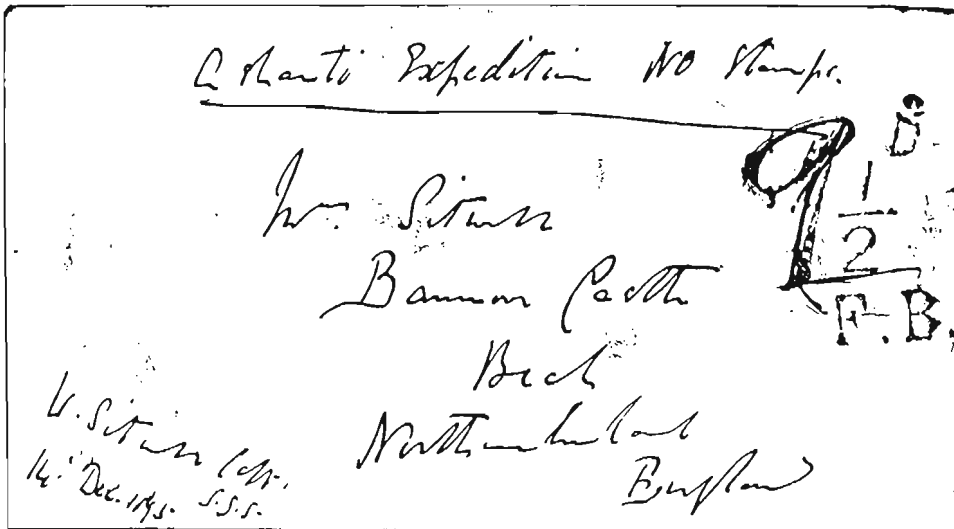 Ashanti Expedition No Stamps.
Mrs. Sitwell
Barmoor Castle
Beal
Northumberland
England
W. Sitwell Capt.
14th Dec. 1895. S.S.S.
1
2
F.B.